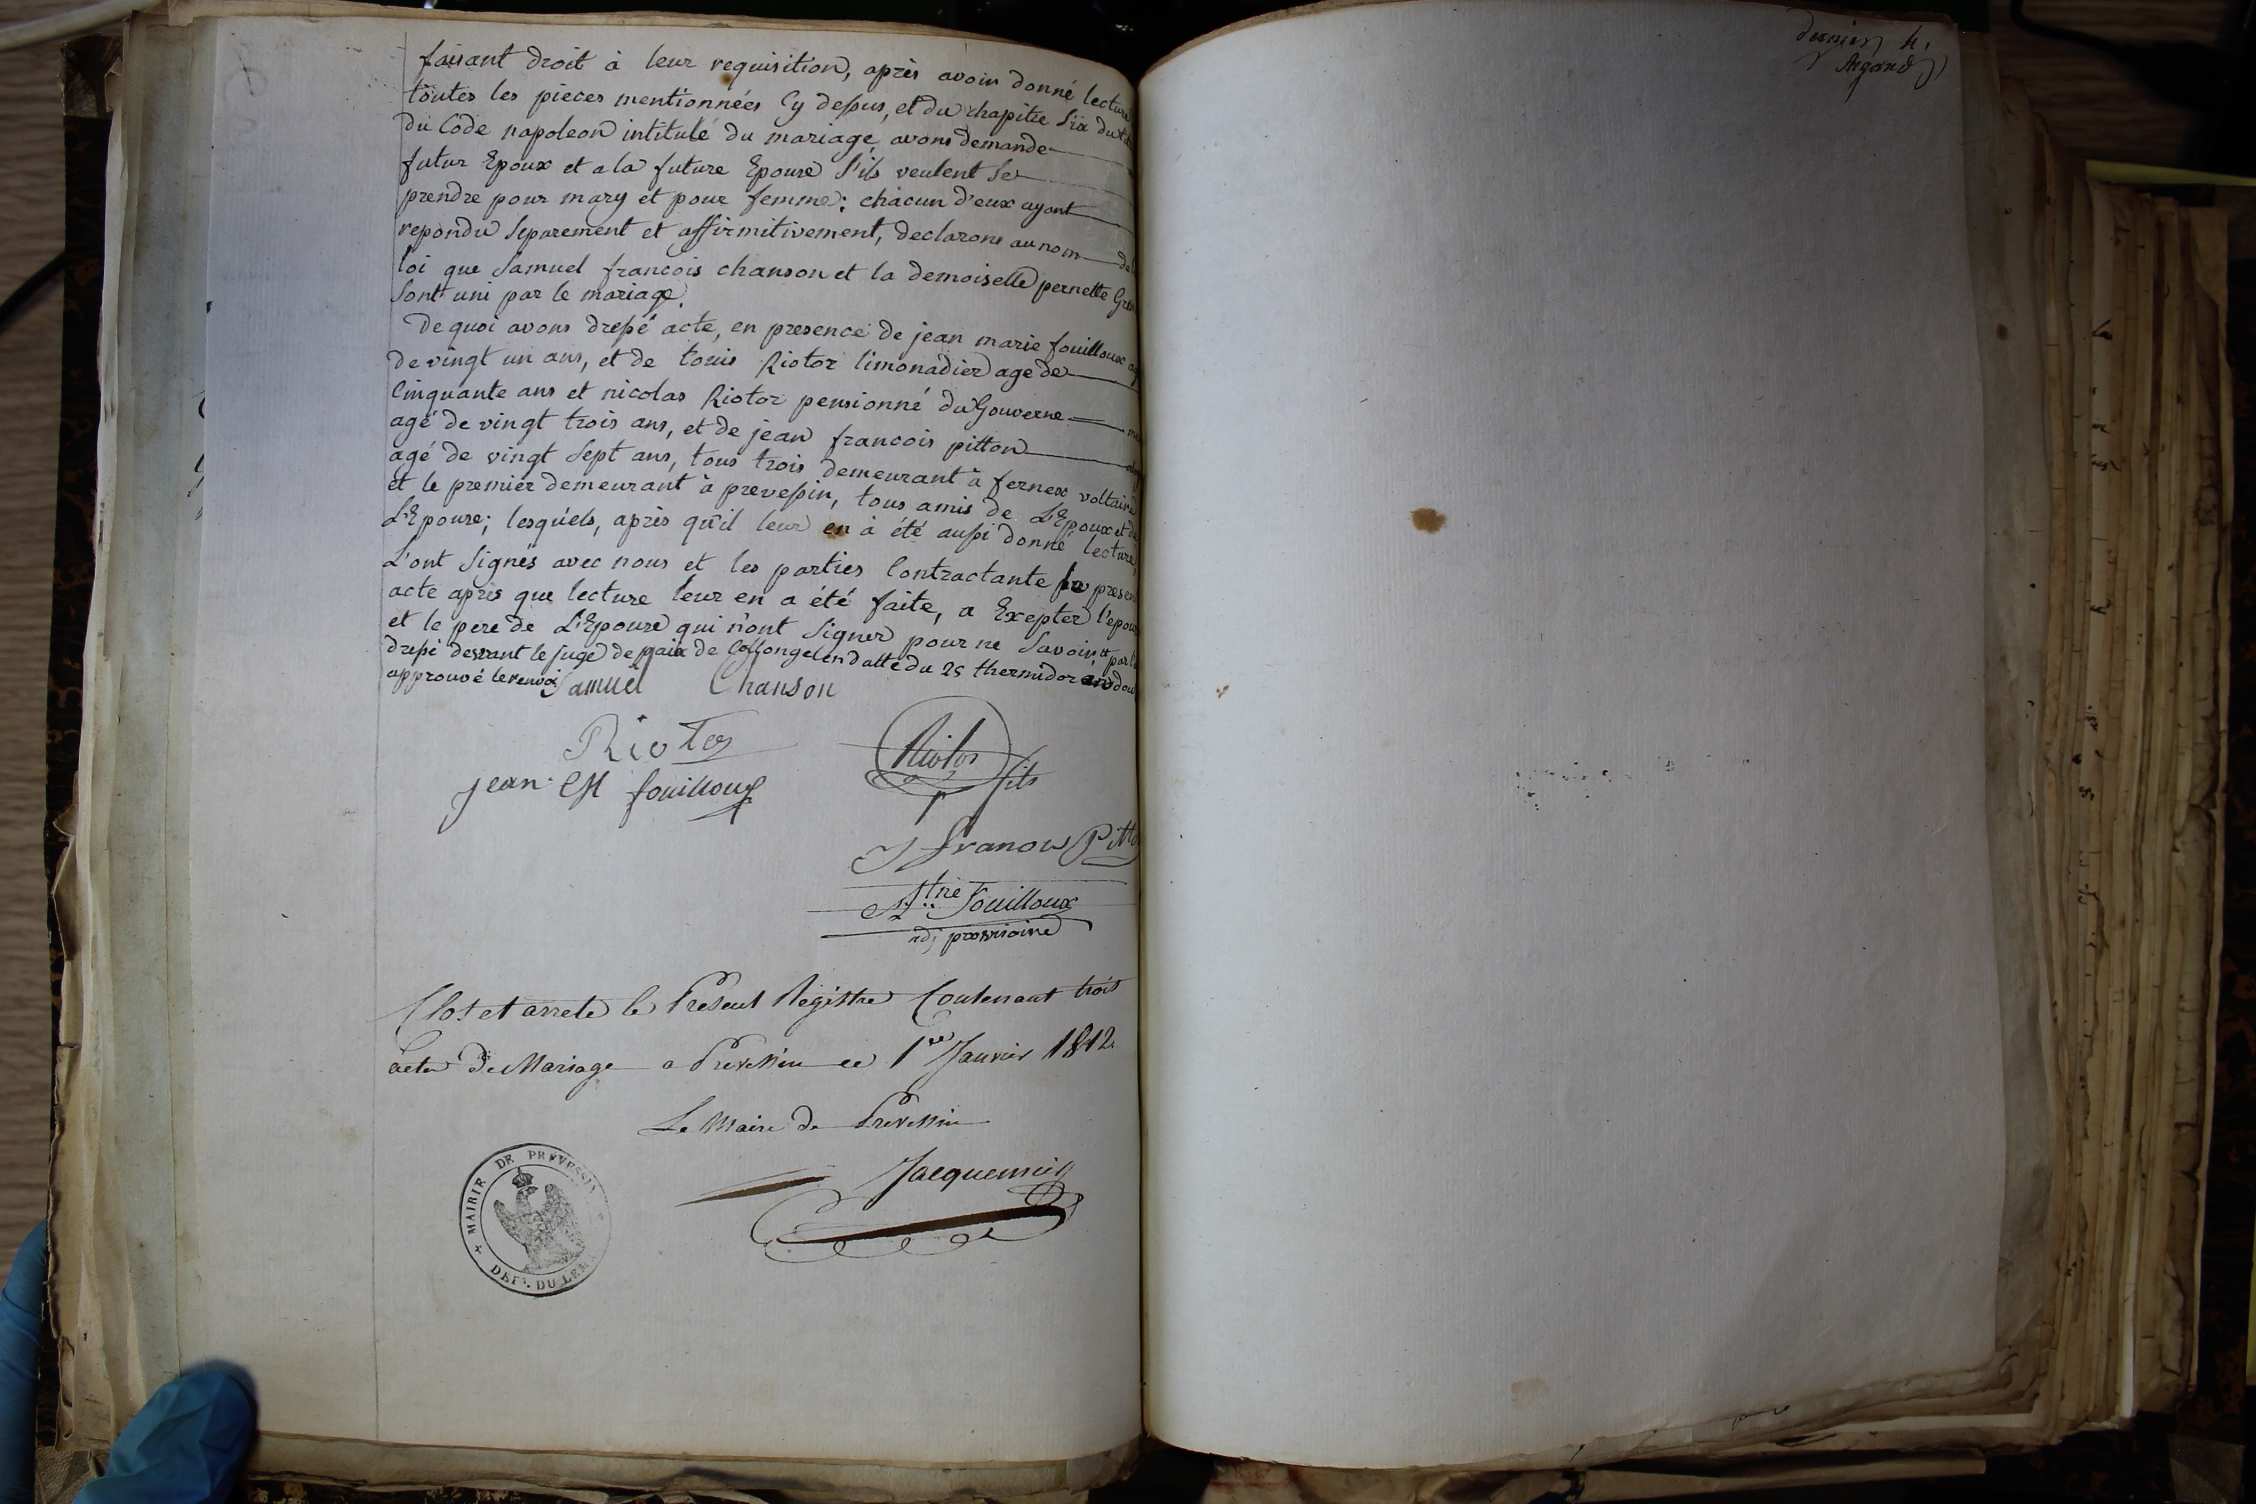 faisant droit à leur requisition, après avoir donné lecture
toutes les pieces mentionnées Cy dessus, et du chapitre Six du
du Code napoleon intitulé du mariage, avons demande
futur Epoux et a la future Epouse S'ils veulent Se
prendre pour mary et pour femme; chacun d'eux ayant
repondu Separement et affirmitivement, declarons au nom de
loi que Samuel francois chanson et la demoiselle pernette
Sont uni par le mariage.
De quoi avons dressé acte, en presence de jean marie fouilloux
de vingt un ans, et de Louis Riotor limonadier age de
Cinquante ans et nicolas Riotor pensionné du Gouverne
agé de vingt trois ans, et de jean francois pitton
agé de vingt Sept ans, tous trois demeurant à fernex voltaire
et le premier demeurant à prevessin, tous amis de L'Epoux et de
L'Epouse; lesquels, après qu'il leur en à été aussi donné lecture,
L'ont Signés avec nous et les parties Contractante le present
acte après que lecture leur en a été faite, a Exepter l'epouse
et le pere de L'Epouse qui n'ont Signer pour ne Savoir,
dressé devant le juge de paix de Collonge en datte du 25 thermidor an
approuvé le renvoi Samuel Chanson
Riotor
Riotor fils
jean M fouilloux
J francois Pitto
fouilloux
adj provisoire
Clos et arrete le Present Registre Contenant trois
acte De Mariage a Prevessin ce 1er Janvier 1812
Le Maire de Prevessin
Jacquemier
MAIRIE DE PREVESSIN
DEPt. DU LEM
dernier 4.